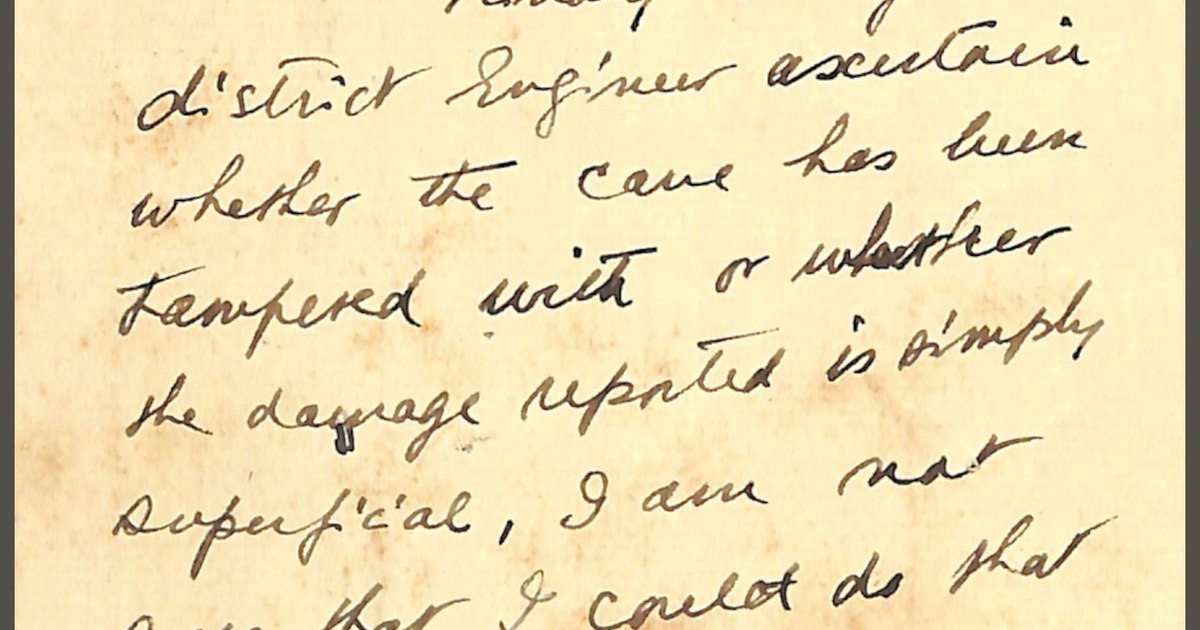 district Engineer ascertain
whether the cave has been
tampered with or whether
the damage reported is simply
superficial, I am not
that I could do that